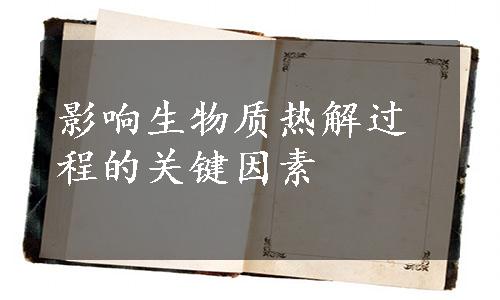 影响生物质热解过
程的关键因素